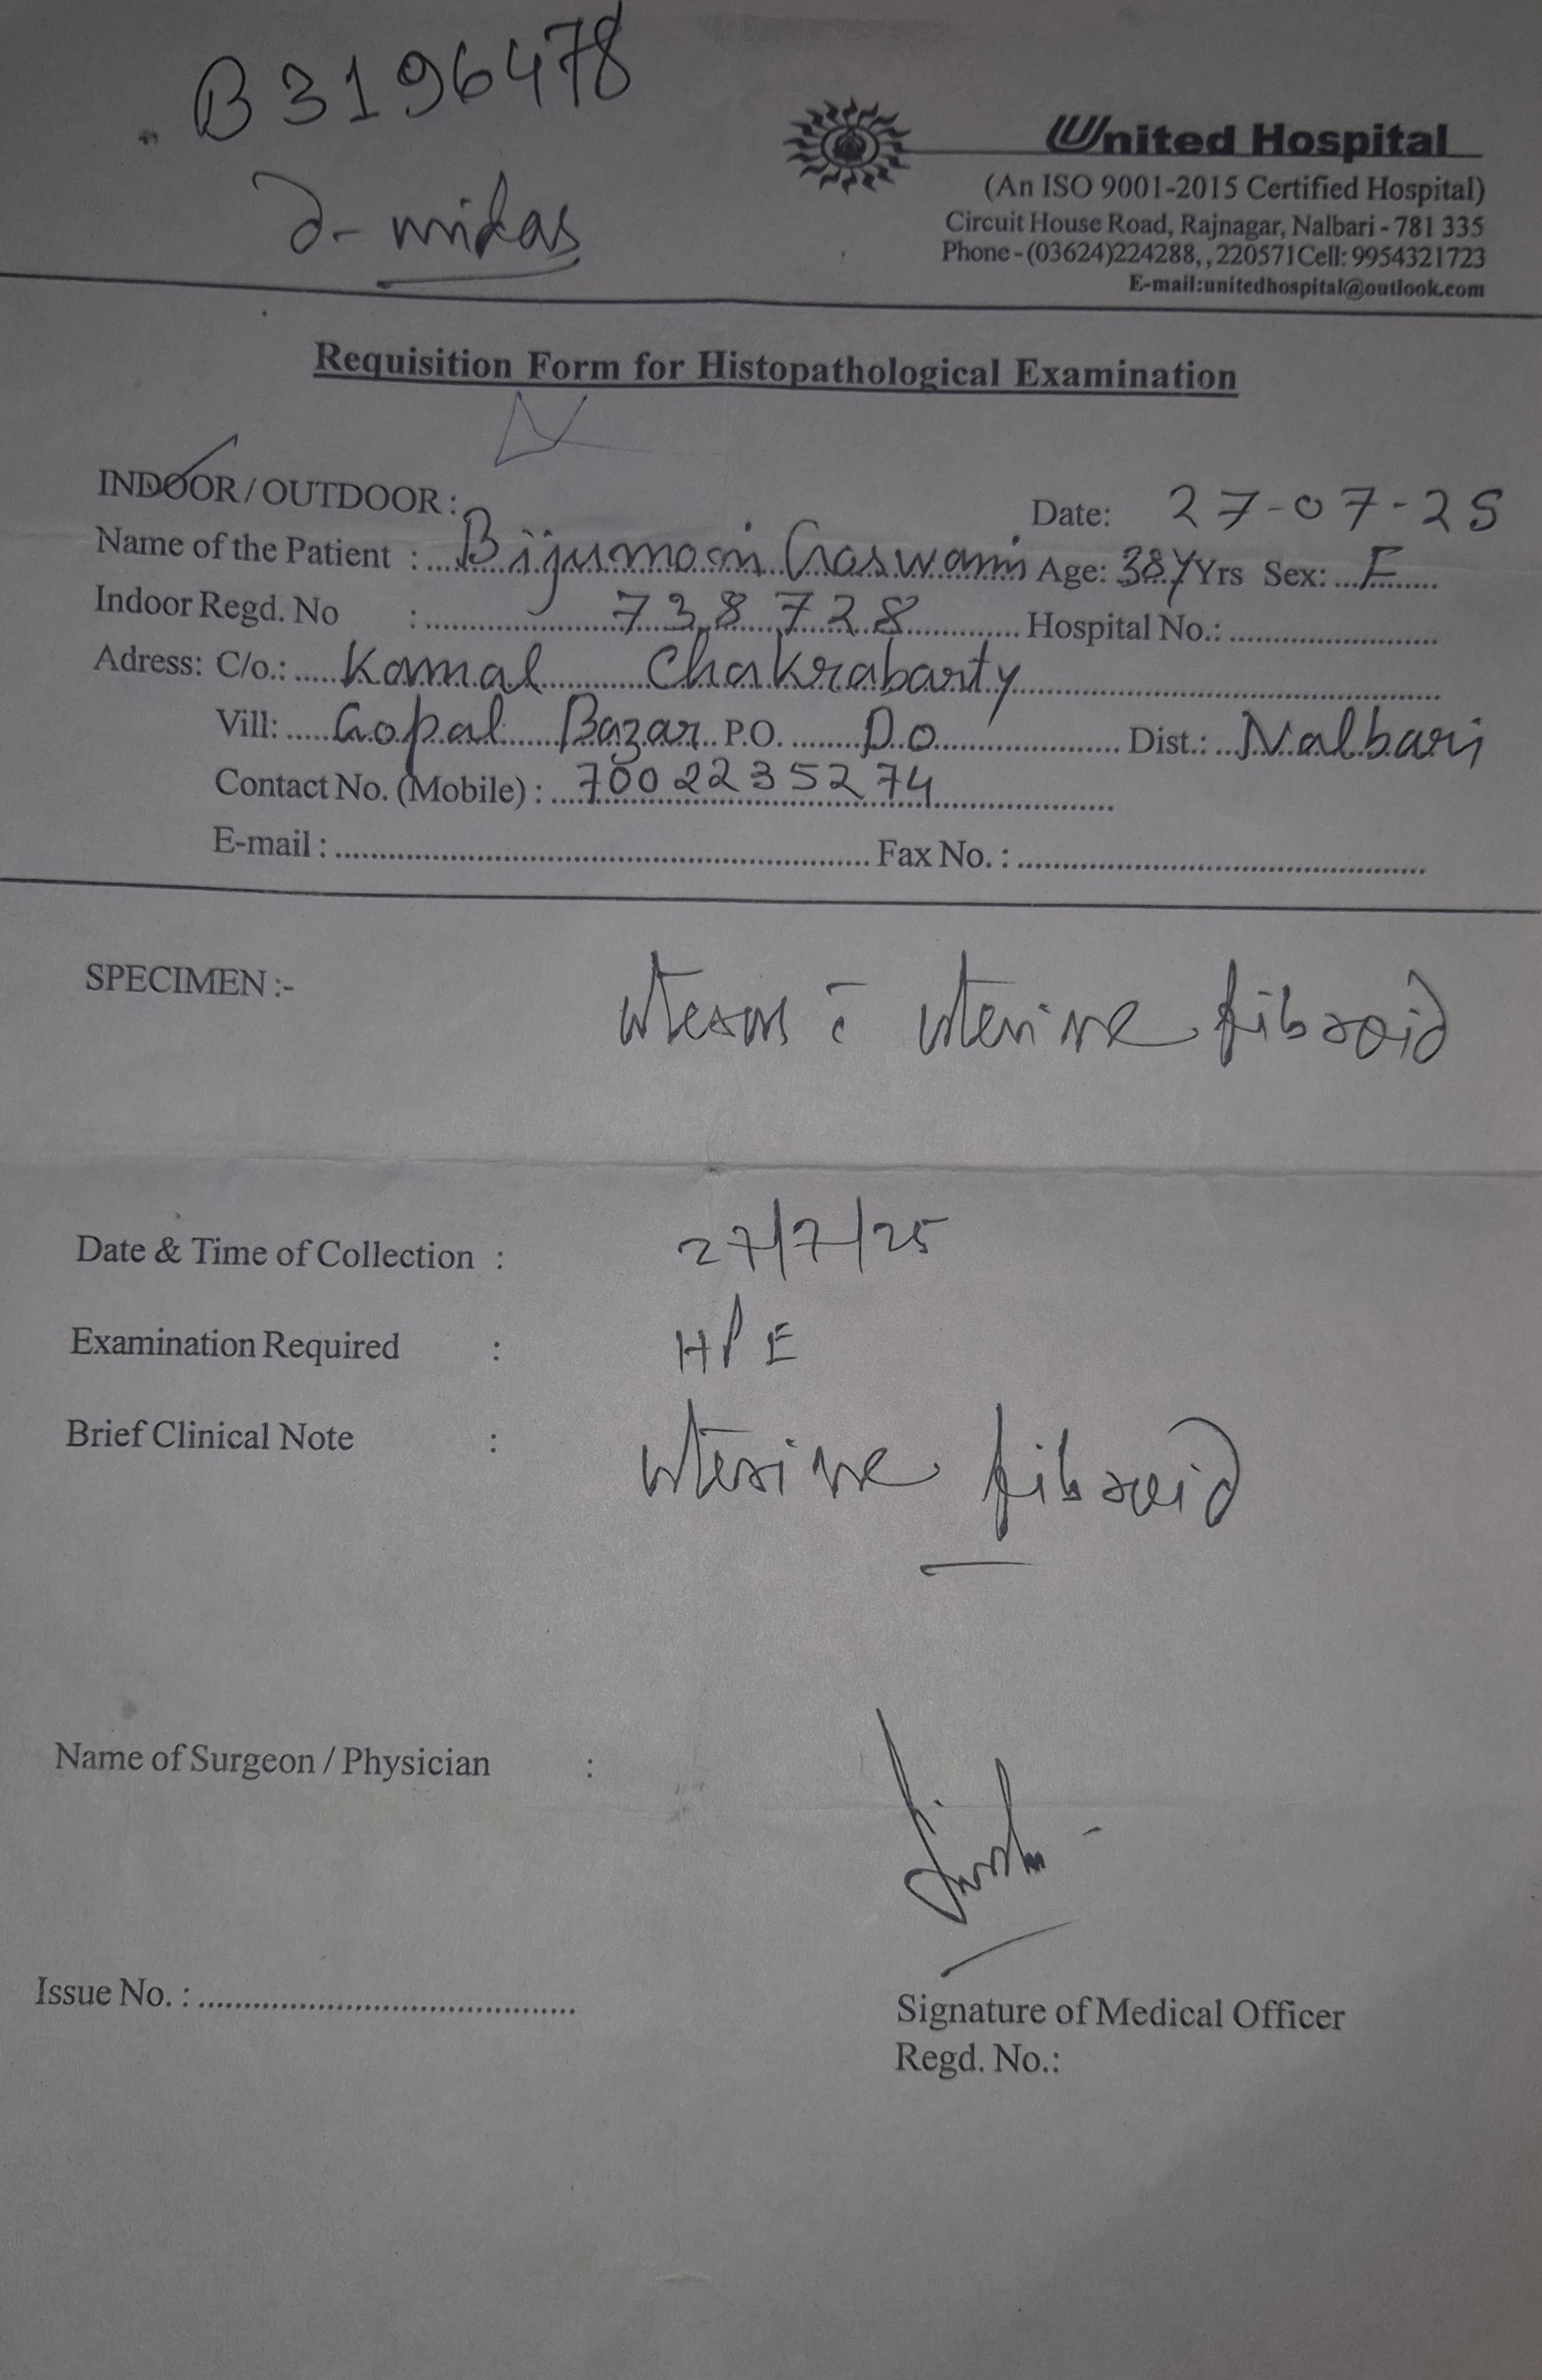 B3196478
United Hospital
(An ISO 9001-2015 Certified Hospital)
Circuit House Road, Rajnagar, Nalbari - 781 335
Phone - (03624)224288,, 220571Cell: 9954321723
E-mail:unitedhospital@outlook.com
Requisition Form for Histopathological Examination
INDOOR / OUTDOOR :
Date: 27-07-25
Name of the Patient : Bijumoni Goswami Age: 38Y Yrs Sex: F
Indoor Regd. No : 738728 Hospital No.:
Adress: C/o.: Kamal Chakrabarty
Vill: Gopal Bazar P.O. Do Dist.: Nalbari
Contact No. (Mobile) : 7002235274
E-mail : Fax No. :
SPECIMEN :- uterus c̄ uterine fibroid
Date & Time of Collection : 27/7/25
Examination Required : HPE
Brief Clinical Note : uterine fibroid
Name of Surgeon / Physician :
Issue No. :
Signature of Medical Officer
Regd. No.: